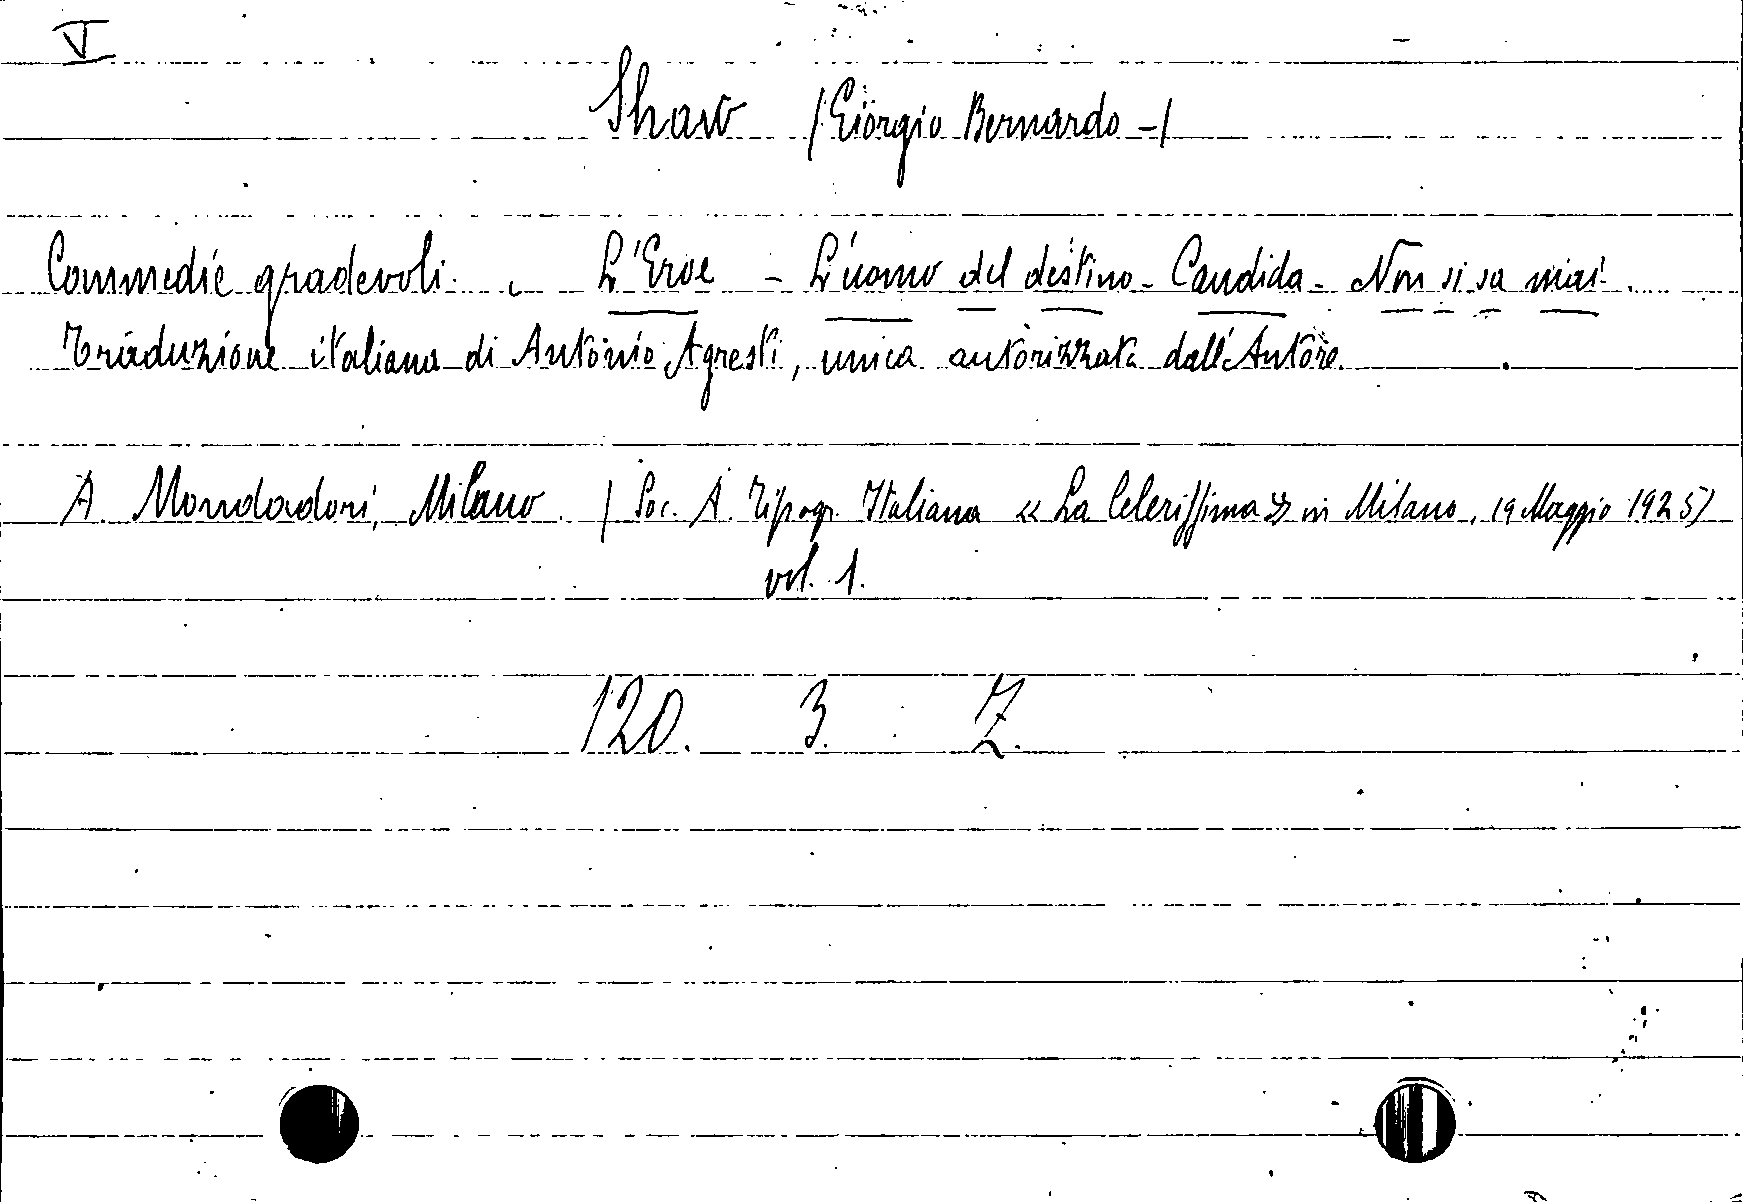 V
Shaw /Giorgio Bernardo -/
Commedie gradevoli. L'Eroe - L'uomo del destino - Candida - Non si sa mai.
Traduzione italiana di Antonio Agresti, unica autorizzata dall'Autore.
A. Mondadori, Milano. / Soc. A. Tipogr. Italiana « La Celerissima » in Milano, 19 Maggio 1925/
vol. 1.
120. 3. Z.